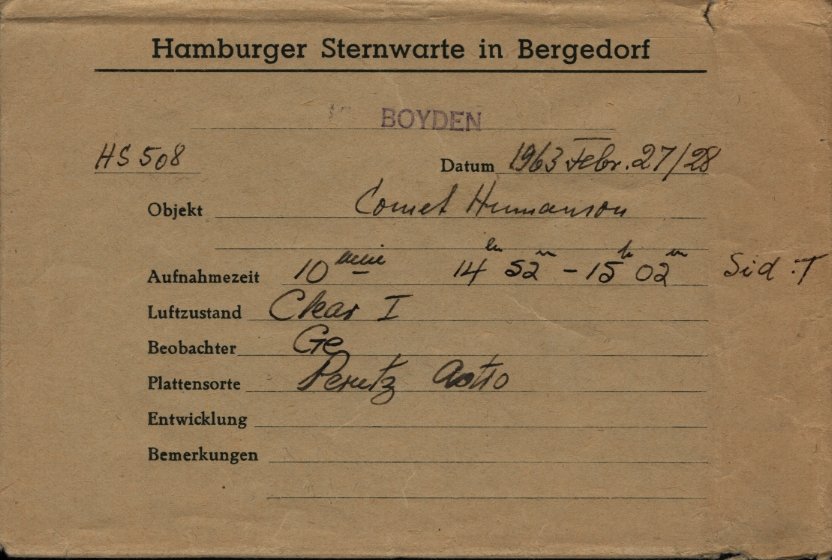 Hamburger Sternwarte in Bergedorf
BOYDEN
HS 508 Datum 1963 Febr. 27/28
Objekt Comet Humanson
Aufnahmezeit 10 min 14h 52m - 15h 02m Sid. T
Luftzustand Clear I
Beobachter Ge
Plattensorte Perutz Astro
Entwicklung
Bemerkungen